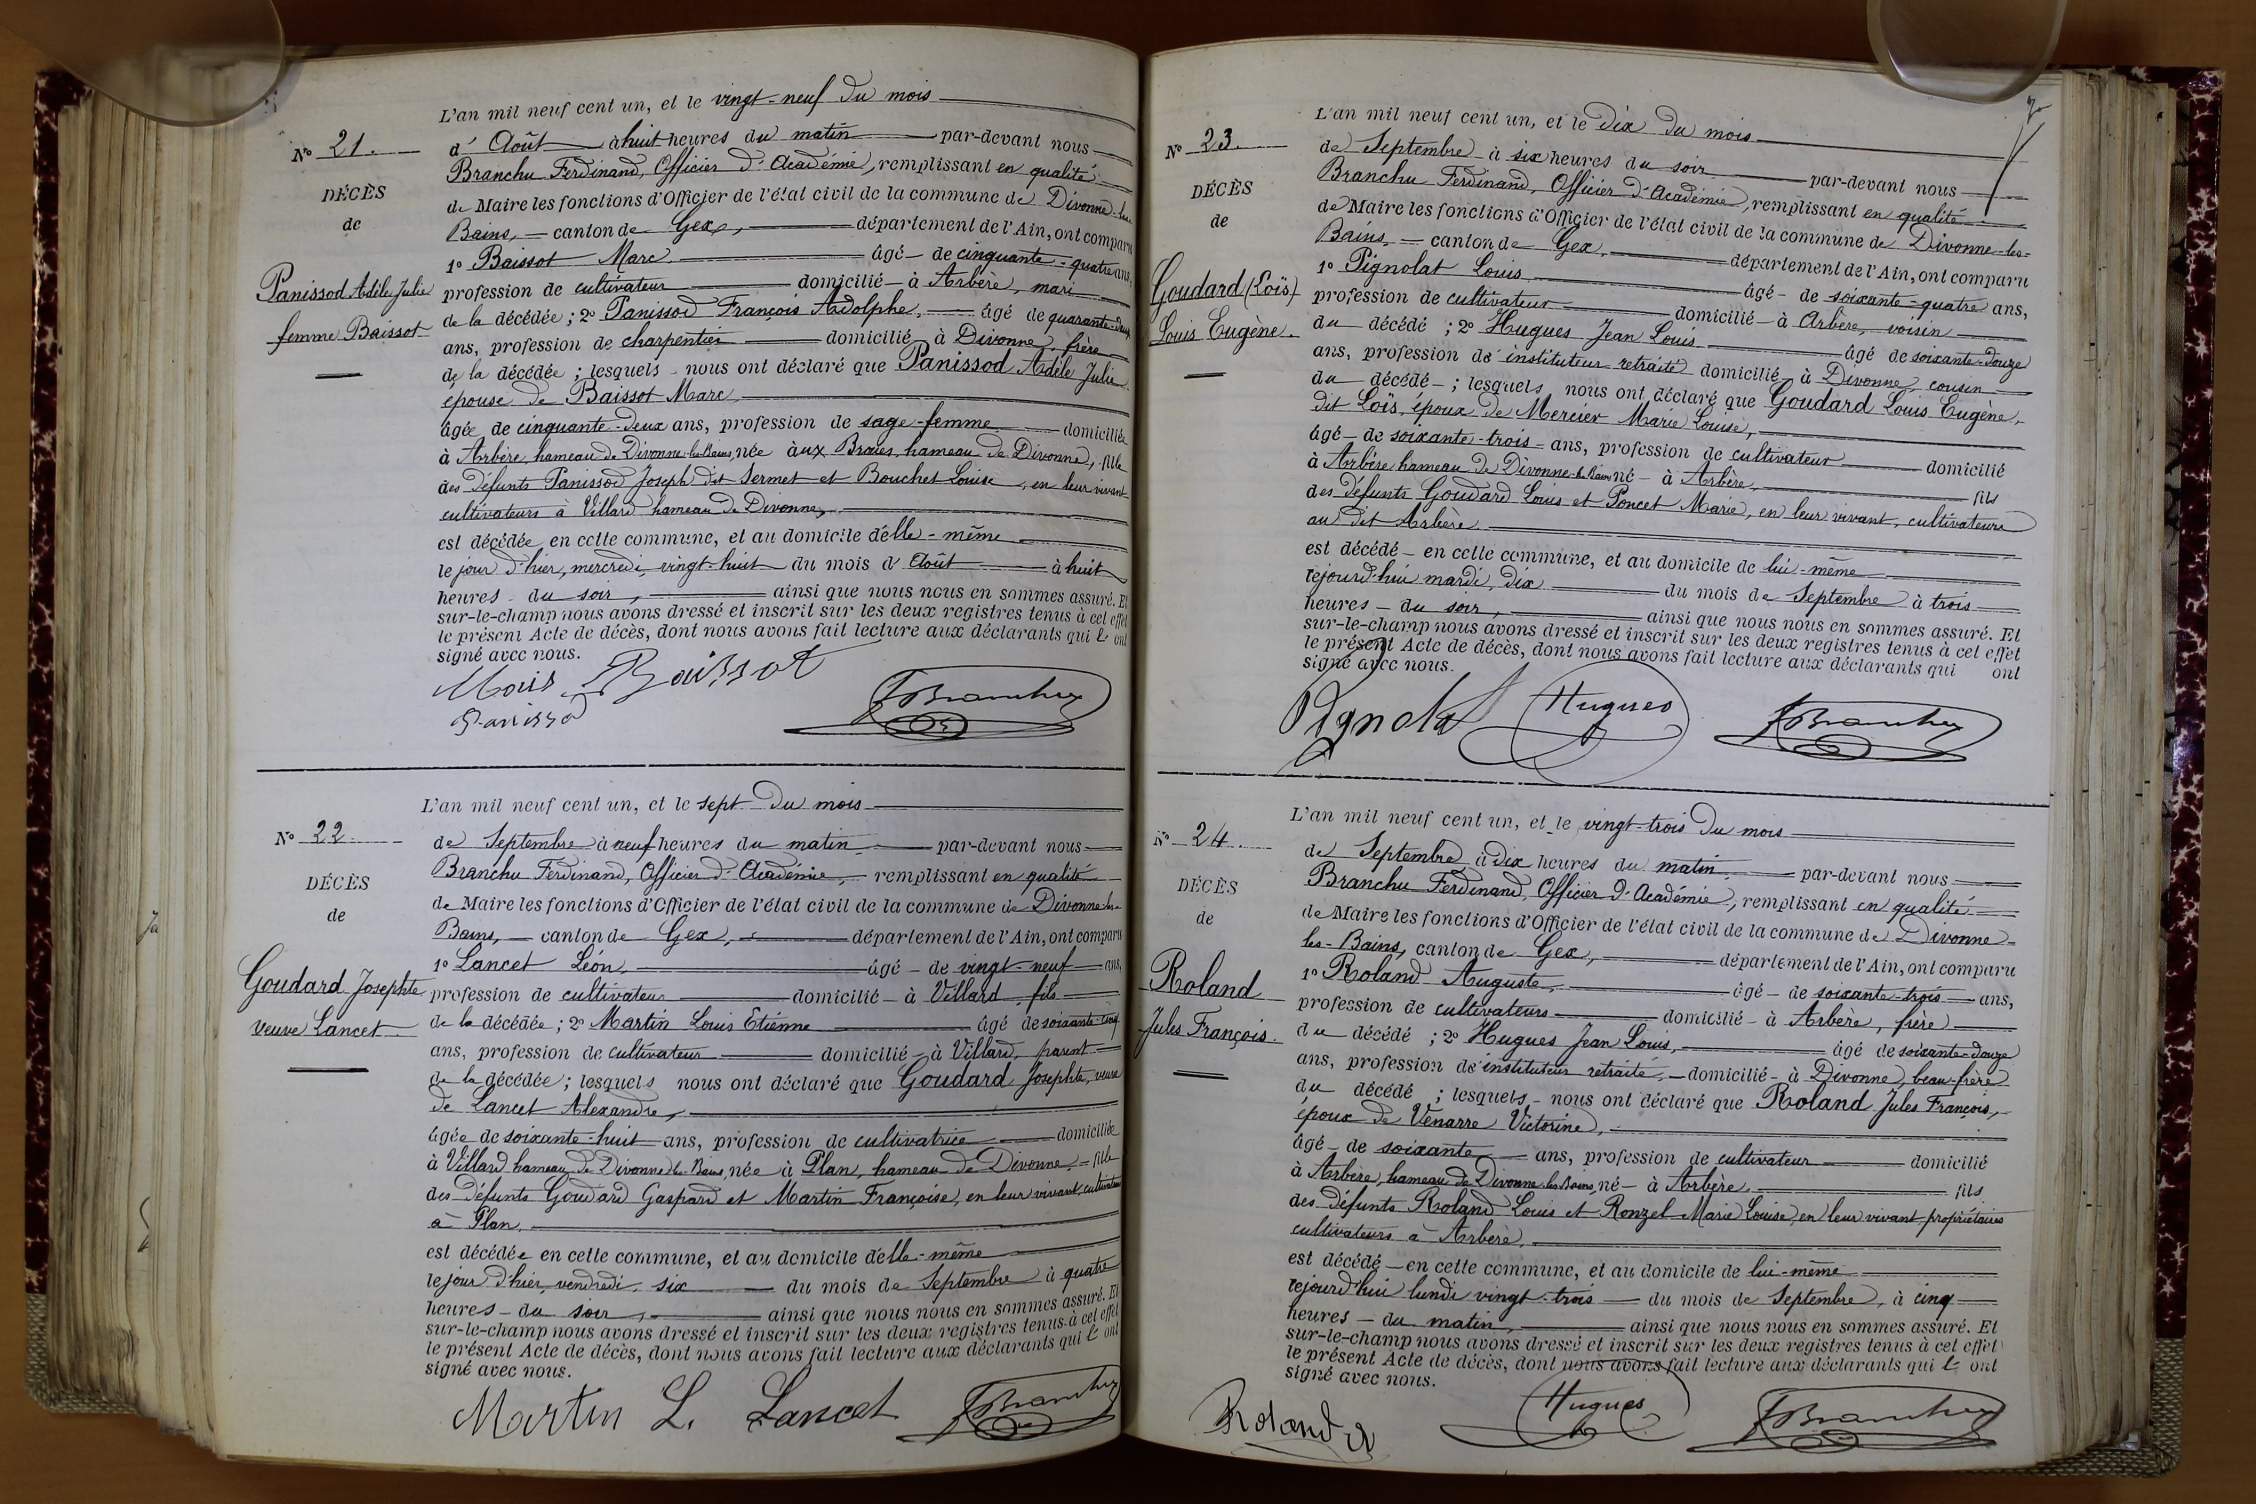 L'an mil neuf cent un, et le vingt-neuf du mois
N° 21.
d'Août à huit heures du matin par-devant nous
Branchu Ferdinand, Officier d'Académie, remplissant en qualité
DÉCÈS
de Maire les fonctions d'Officier de l'état civil de la commune de Divonne-les-
de
Bains, canton de Gex, département de l'Ain, ont comparu
1° Baissot Marc âgé de cinquante-quatre ans,
Panissod Adèle Julie
profession de cultivateur domicilié à Arbère, mari
femme Baissot
de la décédée; 2° Panissod François Adolphe, âgé de quarante-deux
ans, profession de charpentier domicilié à Divonne, frère
de la décédée; lesquels nous ont déclaré que Panissod Adèle Julie
épouse de Baissot Marc,
âgée de cinquante-deux ans, profession de sage-femme domiciliée
à Arbère, hameau de Divonne-les-Bains, née aux Broues, hameau de Divonne, fille
des défunts Panissod Joseph dit Sermet et Bouchet Louise, en leur vivant
cultivateurs à Villard hameau de Divonne,
est décédée en cette commune, et au domicile d'elle-même
le jour d'hier, mercredi, vingt-huit du mois d'Août à huit
heures du soir, ainsi que nous nous en sommes assuré. Et
sur-le-champ nous avons dressé et inscrit sur les deux registres tenus à cet effet
le présent Acte de décès, dont nous avons fait lecture aux déclarants qui l'ont
signé avec nous.
Baissot
Panissod
FBranchu
L'an mil neuf cent un, et le sept du mois
N° 22
de Septembre à neuf heures du matin par-devant nous
Branchu Ferdinand, Officier d'Académie, remplissant en qualité
DÉCÈS
de Maire les fonctions d'Officier de l'état civil de la commune de Divonne-les-
de
Bains, canton de Gex, département de l'Ain, ont comparu
1° Lancet Léon, âgé de vingt-neuf ans,
Goudard Josephte
profession de cultivateur domicilié à Villard, fils
veuve Lancet
de la décédée; 2° Martin Louis Etienne âgé de soixante-cinq
ans, profession de cultivateur domicilié à Villard, parent
de la décédée; lesquels nous ont déclaré que Goudard Josephte, veuve
de Lancet Alexandre,
âgée de soixante-huit ans, profession de cultivatrice domiciliée
à Villard hameau de Divonne-les-Bains, née à Plan, hameau de Divonne, fille
des défunts Goudard Gaspard et Martin Françoise, en leur vivant cultivateurs
à Plan,
est décédée en cette commune, et au domicile d'elle-même
le jour d'hier, vendredi, six du mois de Septembre à quatre
heures du soir, ainsi que nous nous en sommes assuré. Et
sur-le-champ nous avons dressé et inscrit sur les deux registres tenus à cet effet
le présent Acte de décès, dont nous avons fait lecture aux déclarants qui l'ont
signé avec nous.
Martin L. Lancet FBranchu
L'an mil neuf cent un, et le dix du mois
N° 23.
de Septembre à six heures du soir par-devant nous
Branchu Ferdinand, Officier d'Académie, remplissant en qualité
DÉCÈS
de Maire les fonctions d'Officier de l'état civil de la commune de Divonne-les-
de
Bains, canton de Gex, département de l'Ain, ont comparu
1° Pignolat Louis âgé de soixante-quatre ans,
Goudard (Loïs)
profession de cultivateur domicilié à Arbère, voisin
Louis Eugène.
du décédé; 2° Hugues Jean Louis âgé de soixante-douze
ans, profession d'instituteur retraité domicilié à Divonne, cousin
du décédé; lesquels nous ont déclaré que Goudard Louis Eugène,
dit Loïs, époux de Mercier Marie Louise,
âgé de soixante-trois ans, profession de cultivateur domicilié
à Arbère hameau de Divonne-les-Bains né à Arbère, fils
des défunts Goudard Louis et Poncet Marie, en leur vivant, cultivateurs
au dit Arbère
est décédé en cette commune, et au domicile de lui-même
cejourd'hui mardi, dix du mois de Septembre à trois
heures du soir, ainsi que nous nous en sommes assuré. Et
sur-le-champ nous avons dressé et inscrit sur les deux registres tenus à cet effet
le présent Acte de décès, dont nous avons fait lecture aux déclarants qui ont
signé avec nous.
Pignolat Hugues FBranchu
L'an mil neuf cent un, et le vingt-trois du mois
N° 24.
de Septembre à dix heures du matin par-devant nous
Branchu Ferdinand, Officier d'Académie, remplissant en qualité
DÉCÈS
de Maire les fonctions d'Officier de l'état civil de la commune de Divonne-
de
les-Bains, canton de Gex, département de l'Ain, ont comparu
1° Roland Auguste, âgé de soixante-trois ans,
Roland
profession de cultivateur domicilié à Arbère, frère
Jules François.
du décédé; 2° Hugues Jean Louis, âgé de soixante-douze
ans, profession d'instituteur retraité, domicilié à Divonne, beau-frère
du décédé; lesquels nous ont déclaré que Roland Jules François,
époux de Venarre Victorine,
âgé de soixante ans, profession de cultivateur domicilié
à Arbère, hameau de Divonne-les-Bains, né à Arbère, fils
des défunts Roland Louis et Ronzel Marie Louise, en leur vivant, propriétaires
cultivateurs à Arbère,
est décédé en cette commune, et au domicile de lui-même
cejourd'hui lundi vingt-trois du mois de Septembre, à cinq
heures du matin, ainsi que nous nous en sommes assuré. Et
sur-le-champ nous avons dressé et inscrit sur les deux registres tenus à cet effet
le présent Acte de décès, dont nous avons fait lecture aux déclarants qui l'ont
signé avec nous.
Roland A Hugues FBranchu